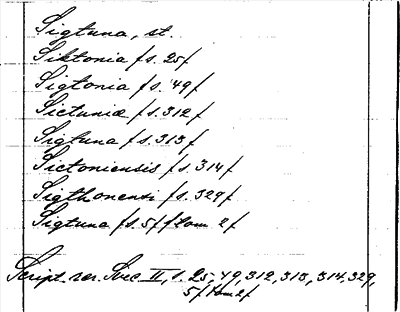 Sigtuna, st.
Siktonia /s. 25/
Sigtonia /s. 49/
Sictuniæ /s. 312/
Sigtuna /s. 313/
Sictoniensis /s. 314/
Sigthonensi /s. 329/
Sigtuna /s. 5/ /tom 2/
Script. rer. Svec II, s. 25, 49, 312, 313, 314, 329,
5/ tom 2/